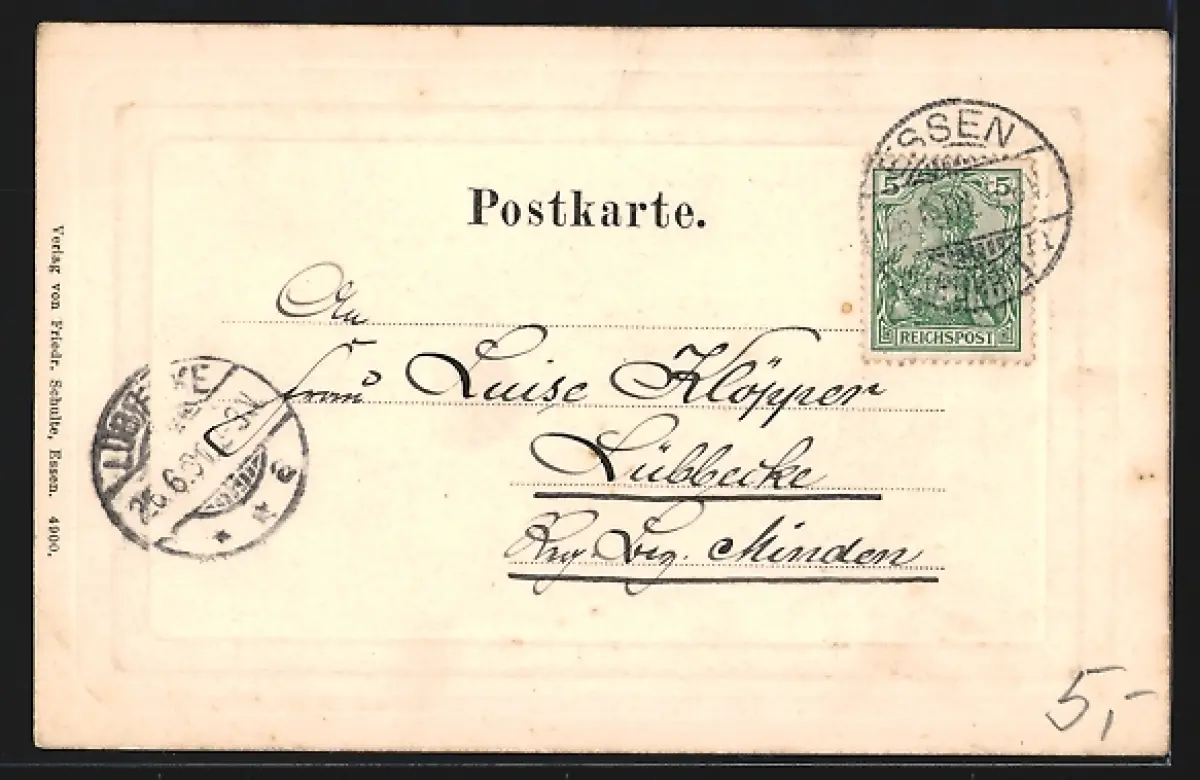 Postkarte.
ESSEN
5 5
REICHSPOST
An
Frau Luise Klöpper
Lübbecke
Reg. Bez. Minden
LÜBBECKE
26.6.01
* * a
Verlag von Friedr. Schulte, Essen. 4900.
5,-